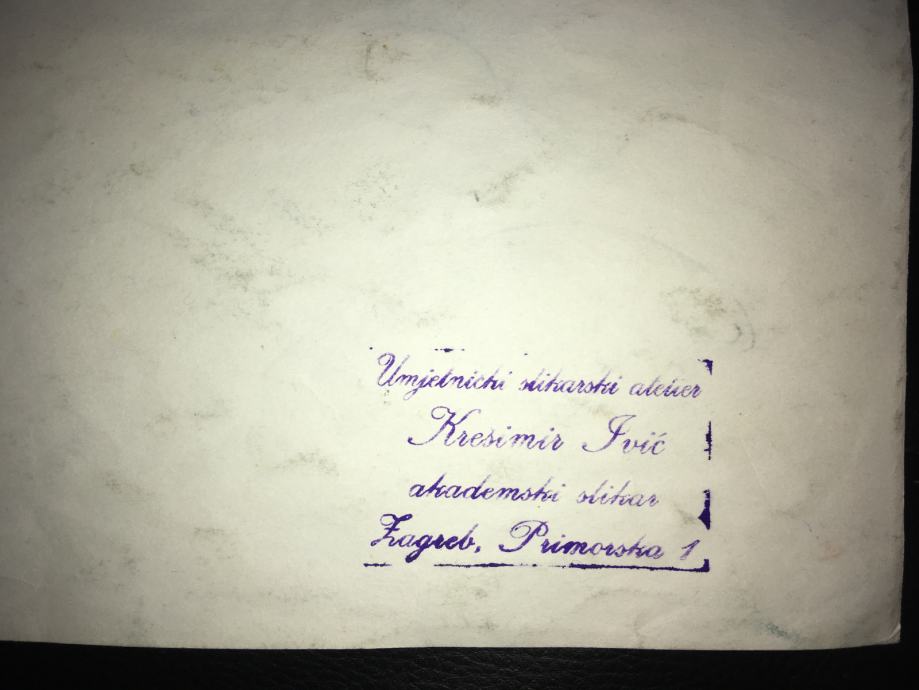 Umjetnički slikarski atelier
Krešimir Ivić
akademski slikar
Zagreb, Primorska 1